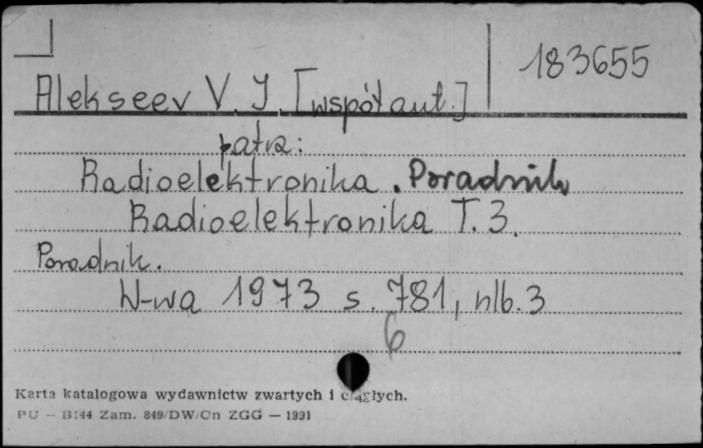 183655
Alekseev V. J. [współaut.]
patrz:
Radioelektronika. Poradnik
Radioelektronika T. 3.
Poradnik.
W-wa 1973 s. 781, nlb. 3
6
Karta katalogowa wydawnictw zwartych i ciągłych.
PU – B144 Zam. 849/DW/Cn ZGG — 1991